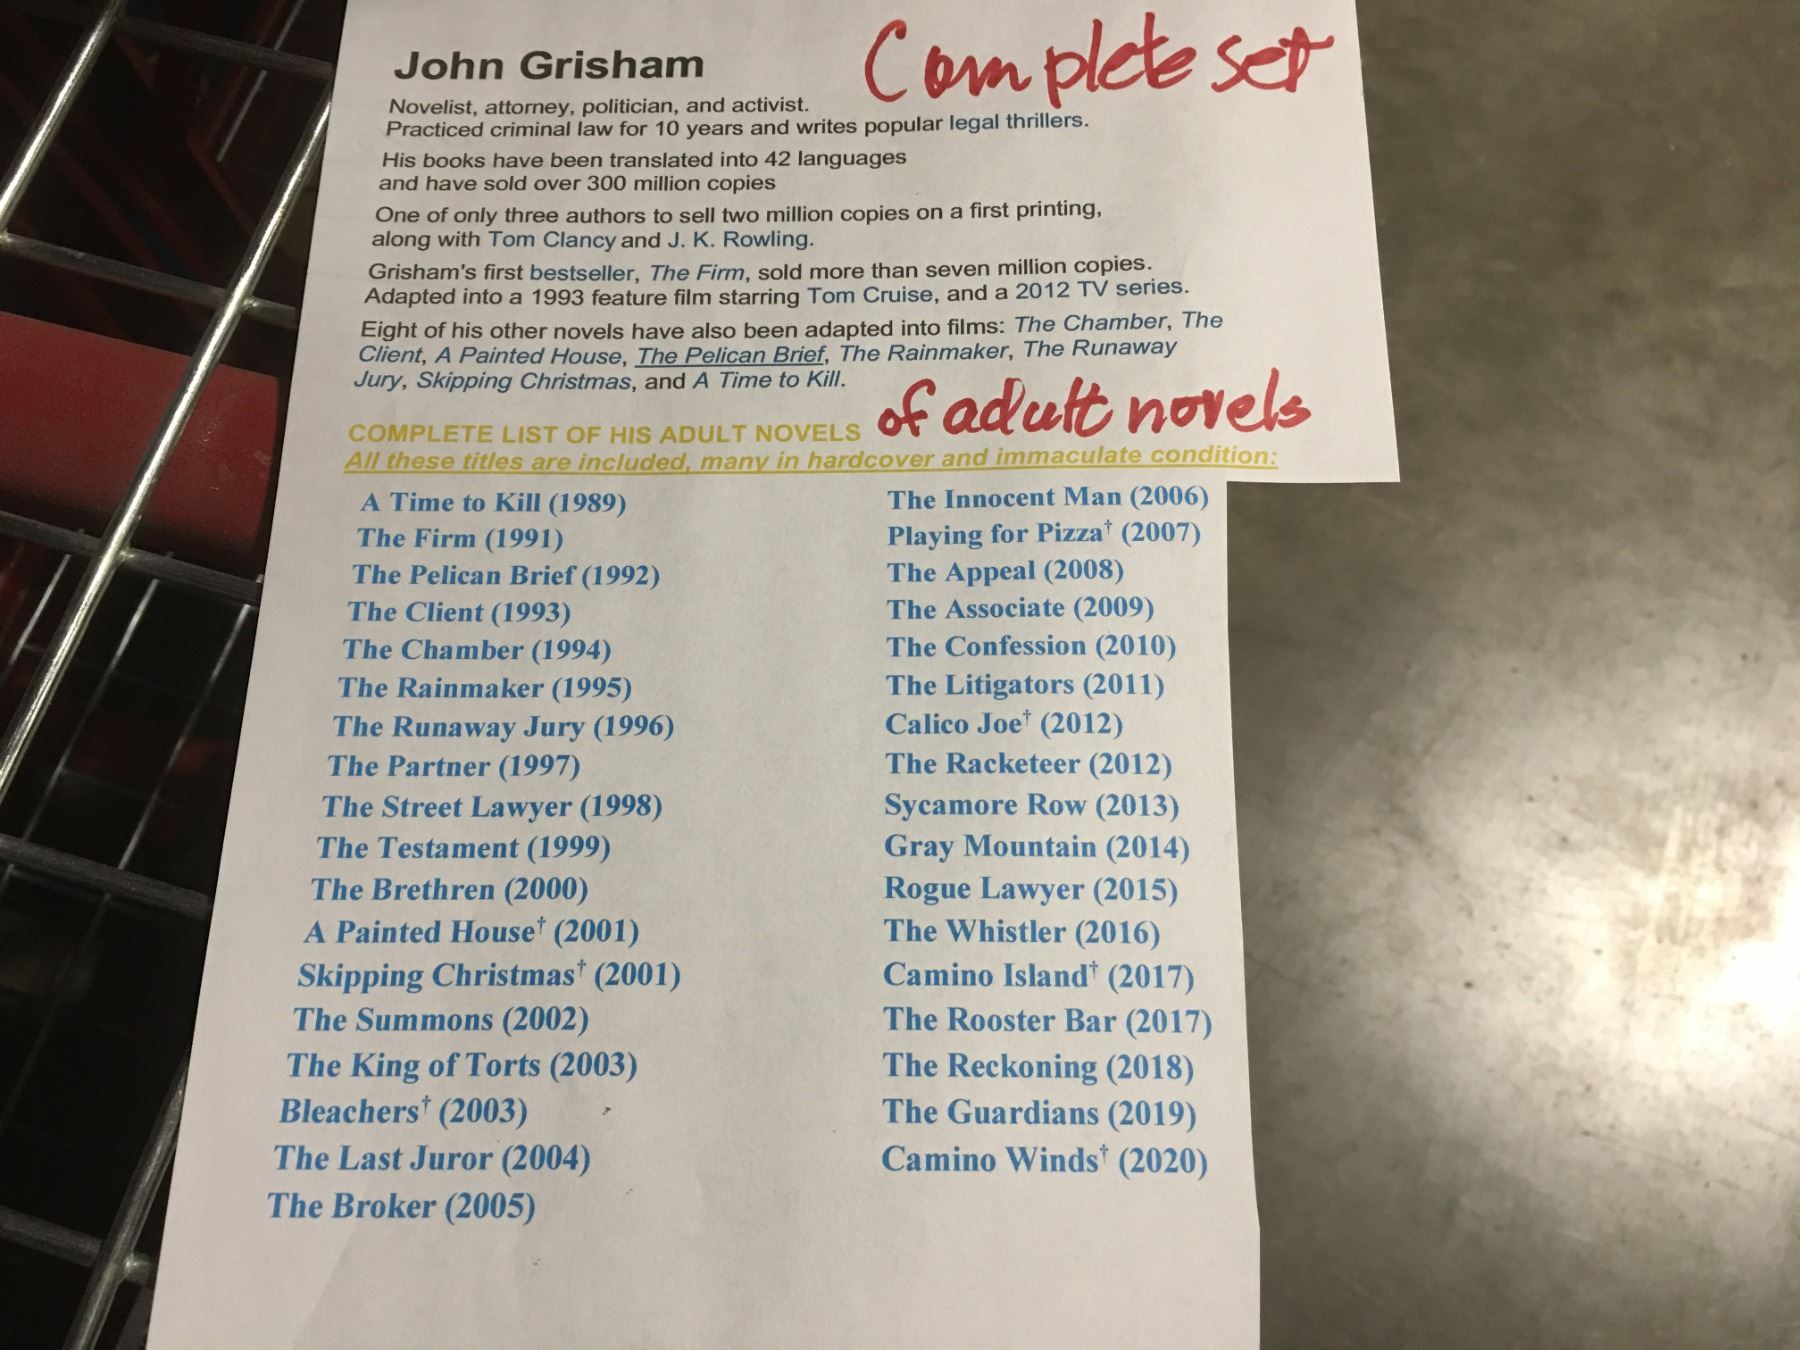 John Grisham
Complete set
Novelist, attorney, politician, and activist.
Practiced criminal law for 10 years and writes popular legal thrillers.
His books have been translated into 42 languages
and have sold over 300 million copies
One of only three authors to sell two million copies on a first printing,
along with Tom Clancy and J. K. Rowling.
Grisham's first bestseller, The Firm, sold more than seven million copies.
Adapted into a 1993 feature film starring Tom Cruise, and a 2012 TV series.
Eight of his other novels have also been adapted into films: The Chamber, The
Client, A Painted House, The Pelican Brief, The Rainmaker, The Runaway
Jury, Skipping Christmas, and A Time to Kill.
of adult novels
COMPLETE LIST OF HIS ADULT NOVELS
All these titles are included, many in hardcover and immaculate condition:
A Time to Kill (1989)
The Firm (1991)
The Pelican Brief (1992)
The Client (1993)
The Chamber (1994)
The Rainmaker (1995)
The Runaway Jury (1996)
The Partner (1997)
The Street Lawyer (1998)
The Testament (1999)
The Brethren (2000)
A Painted House† (2001)
Skipping Christmas† (2001)
The Summons (2002)
The King of Torts (2003)
Bleachers† (2003)
The Last Juror (2004)
The Broker (2005)
The Innocent Man (2006)
Playing for Pizza† (2007)
The Appeal (2008)
The Associate (2009)
The Confession (2010)
The Litigators (2011)
Calico Joe† (2012)
The Racketeer (2012)
Sycamore Row (2013)
Gray Mountain (2014)
Rogue Lawyer (2015)
The Whistler (2016)
Camino Island† (2017)
The Rooster Bar (2017)
The Reckoning (2018)
The Guardians (2019)
Camino Winds† (2020)